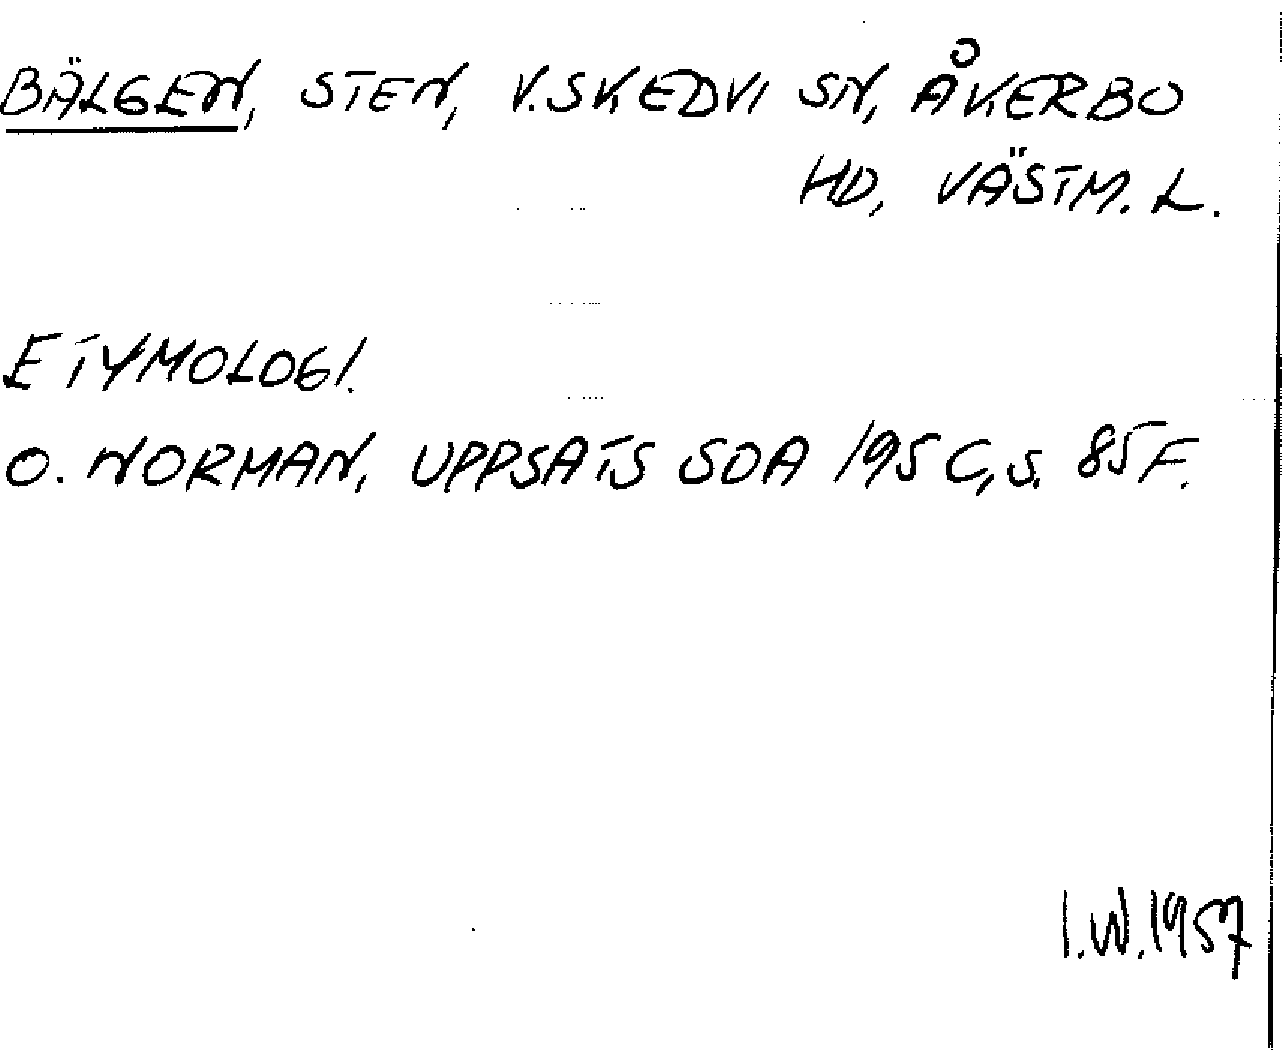 BÄLGEN, STEN, V. SKEDVI SN, ÅKERBO
HD, VÄSTM. L.
ETYMOLOGI.
O. NORMAN, UPPSATS SOA 195 C, S. 85 F.
I.W. 1957